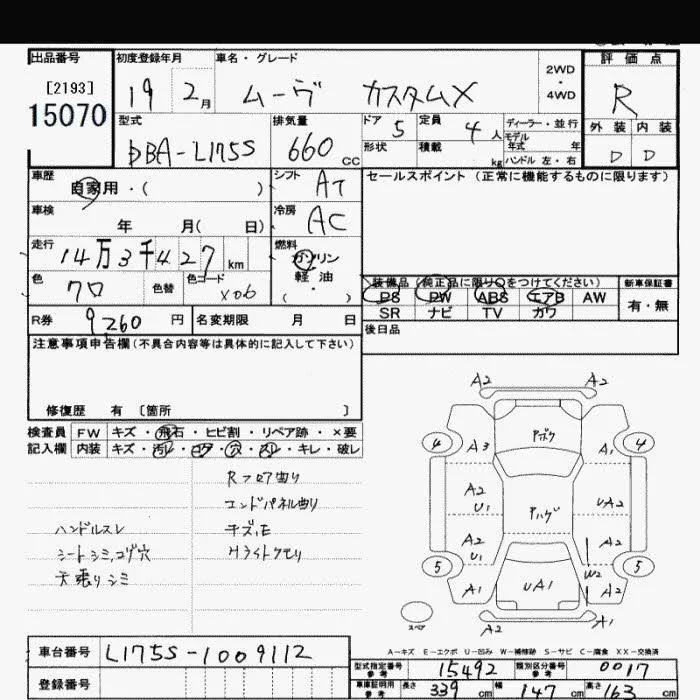 出品番号 初度登録年月 車名・グレード 評価点
[2193] 19 2月 ムーヴ カスタムX 2WD・4WD R
15070 型式 排気量 ドア 5 定員 4人 ディーラー・並行 外装 内装
DBA-L175S 660cc 形状 積載 kg モデル年式 年 ハンドル 左・右 D D
車歴 自家用・( ) シフト AT セールスポイント (正常に機能するものに限ります)
車検 年 月( 日) 冷房 AC
走行 14万3千427km 燃料 ガソリン
色 クロ 色替 色コード X06 軽・油 ( )
装備品 (純正品に限り○をつけてください) 新車保証書
PS PW ABS エアB AW 有・無
SR ナビ TV カワ
R券 9260円 名変期限 月 日 後日品
注意事項申告欄(不具合内容等は具体的に記入して下さい)
修復歴 有 〔箇所 〕
検査員 FW キズ・飛石・ヒビ割・リペア跡・×要
記入欄 内装 キズ・汚レ・コゲ・穴・スレ・キレ・破レ
Rフロア曲り
エンドパネル曲り
ハンドルスレ キズ、E
シートシミ,コゲ穴 Hライトクモリ
天張りシミ
A2 A2
4 A3 Pボク A1 4
A2 UA2
Pハゲ
A2 U1 A2
5 A1 UA1 W2 A2 5
スペア A2 A1
A-キズ E-エクボ U-凹み W-補修跡 S-サビ C-腐食 XX-交換済
車台番号 L175S-1009112
登録番号
型式指定番号 参考 15492 類別区分番号 参考 0017
車庫証明用 参考 長さ 339cm 幅 147cm 高さ 163cm